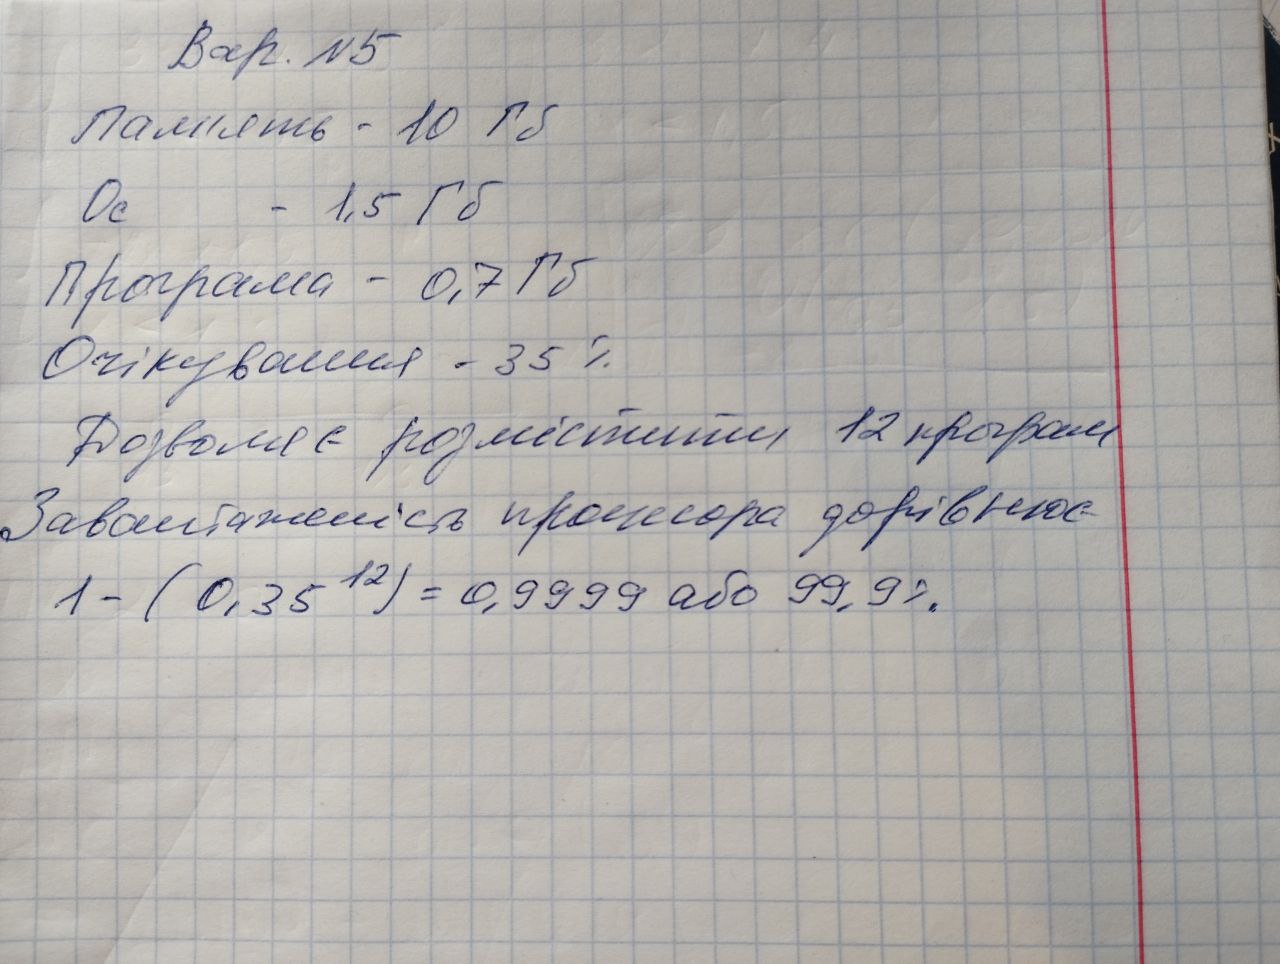 Вар. №5
Память - 10 Гб
Ос - 1,5 Гб
Програма - 0,7 Гб
Очікування - 35 %.
Дозволяє розмістити 12 програм
Завантаженість процесора дорівнює
1 - (0,35^12) = 0,9999 або 99,9%.